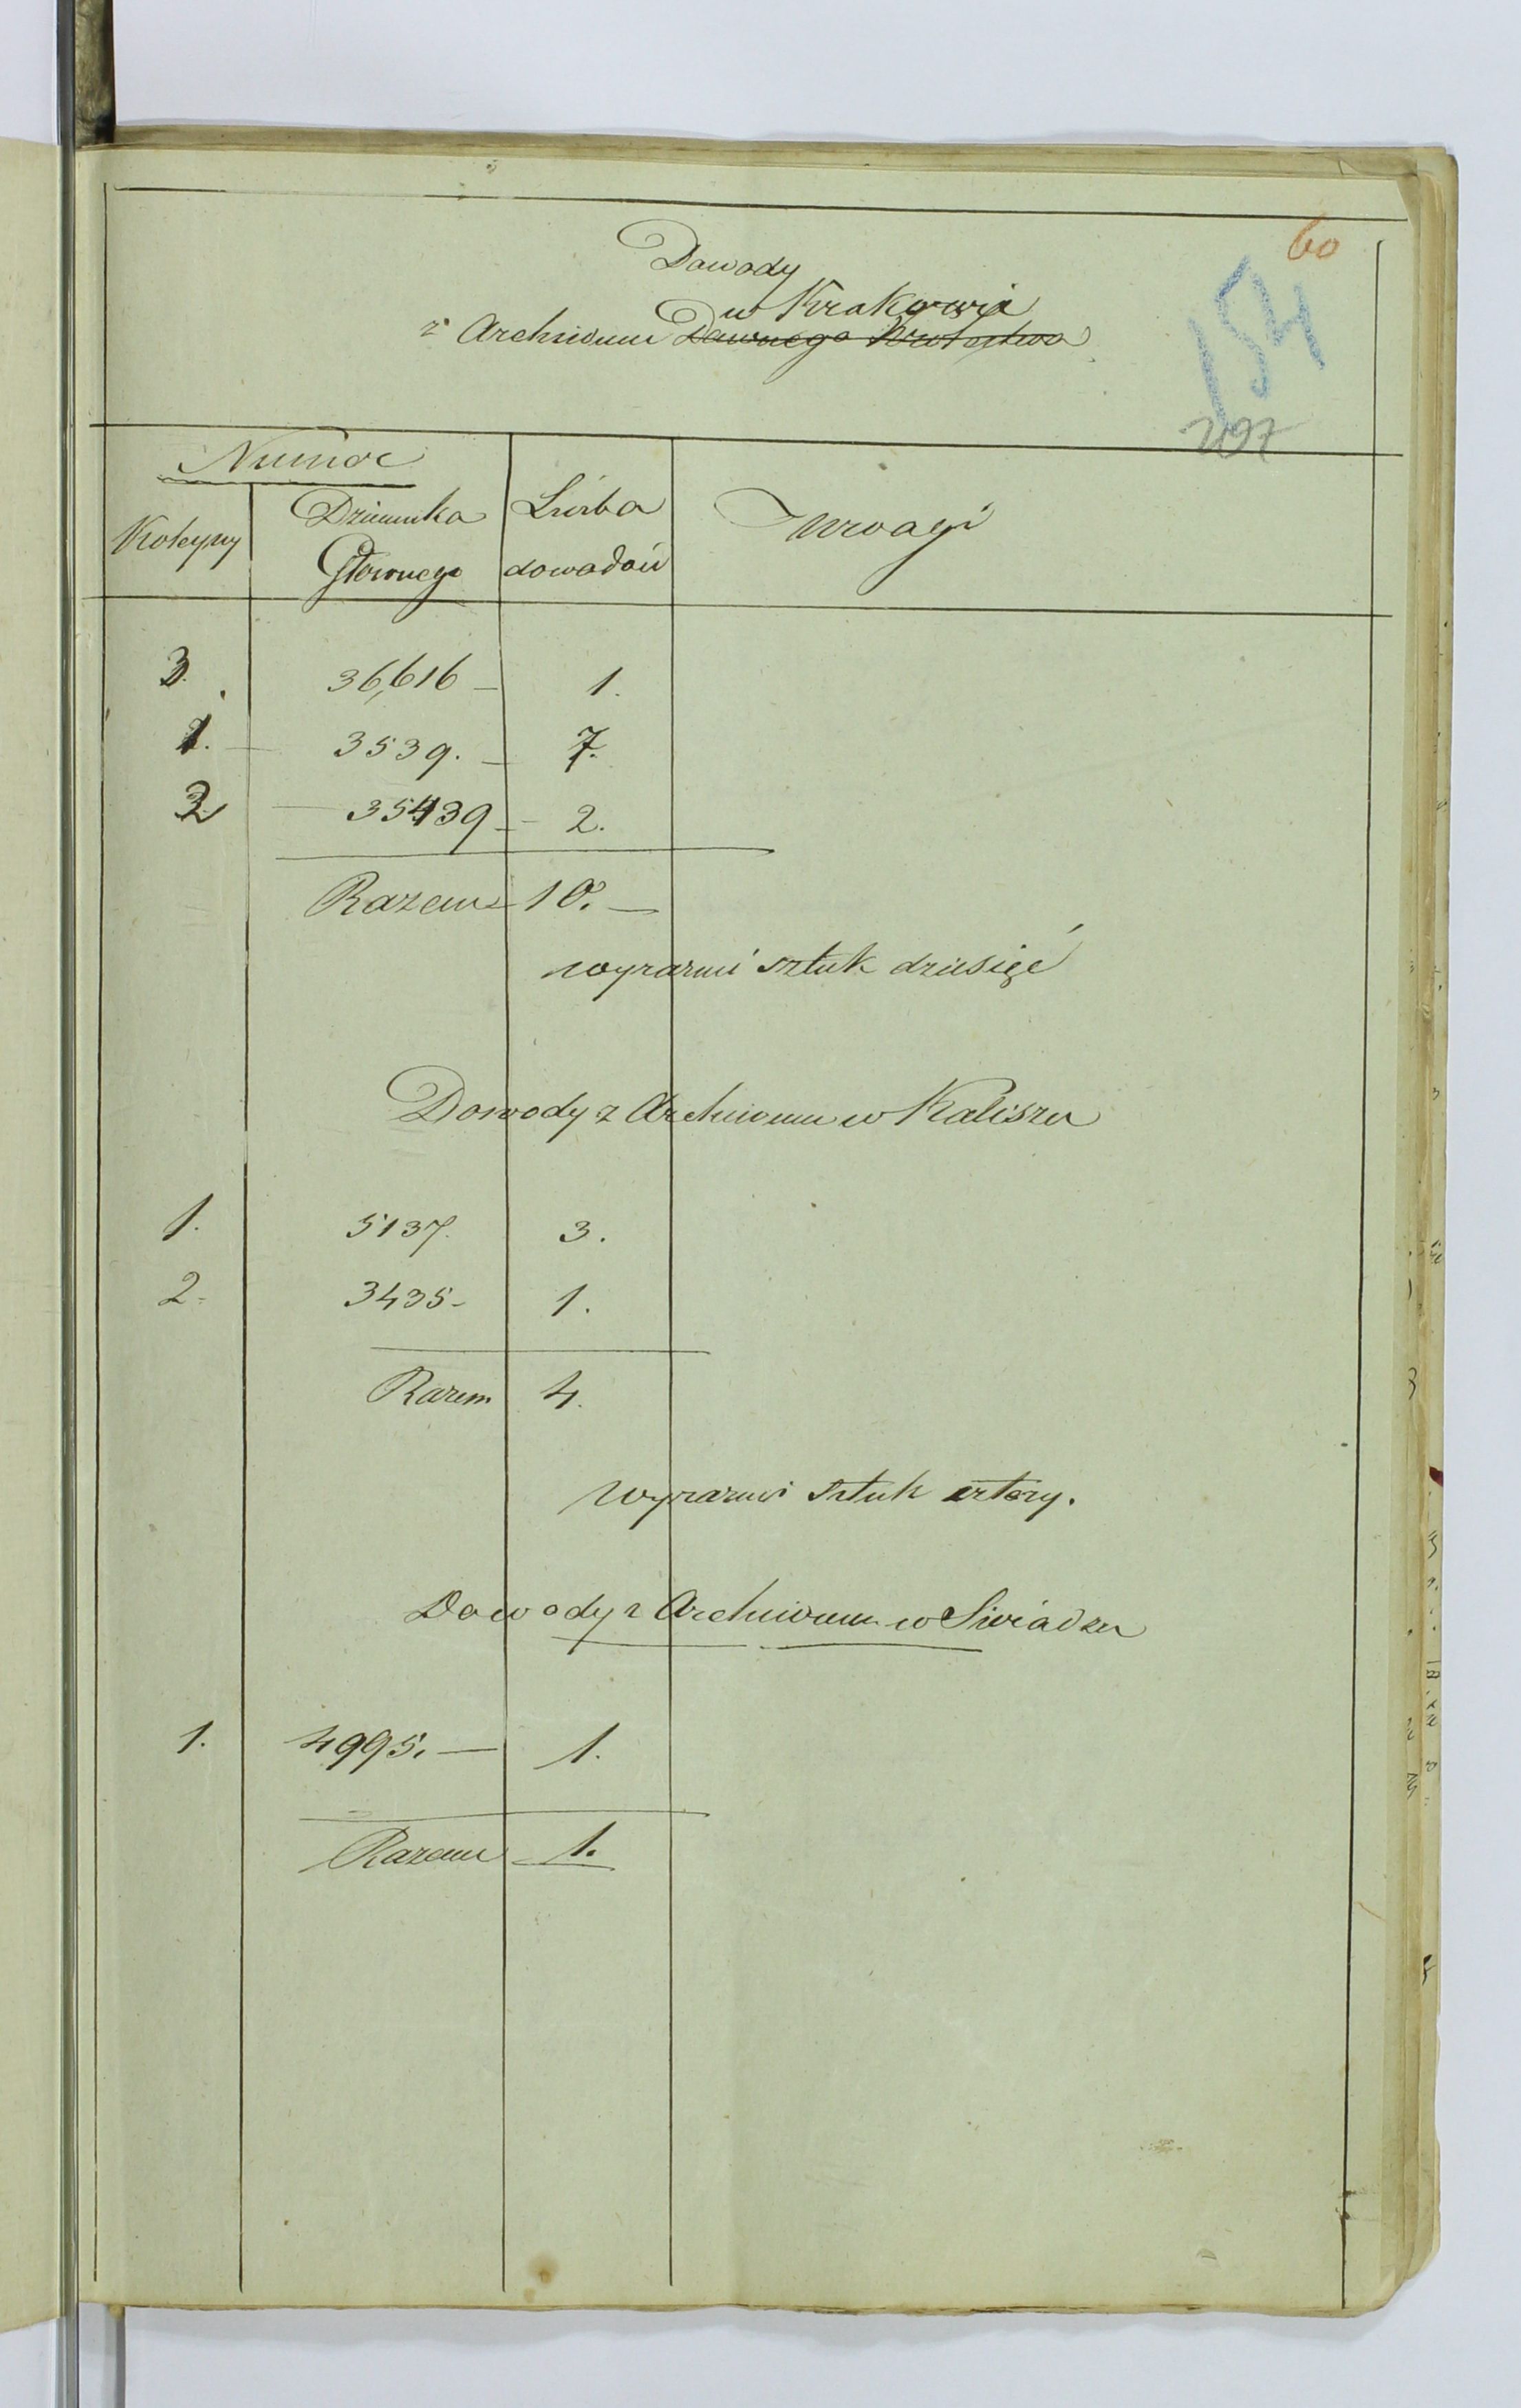 60
Dowody
w Krakowie
z Archiwum Dawnego Królestwa
154
297
Numer
Kolejny
Dziennika Głównego
Liczba dowodów
Uwagi
3. 36,616 — 1.
1. — 3539. — 7.
2 — 35439 — 2.
Razem 10. —
wyraźnie sztuk dziesięć
Dowody z Archiwum w Kaliszu
1. 5137. 3.
2. 3435 - 1.
Razem 4.
Wyraźnie sztuk cztery.
Dowody z Archiwum w Sieradzu
1. 4995. — 1.
Razem — 1.